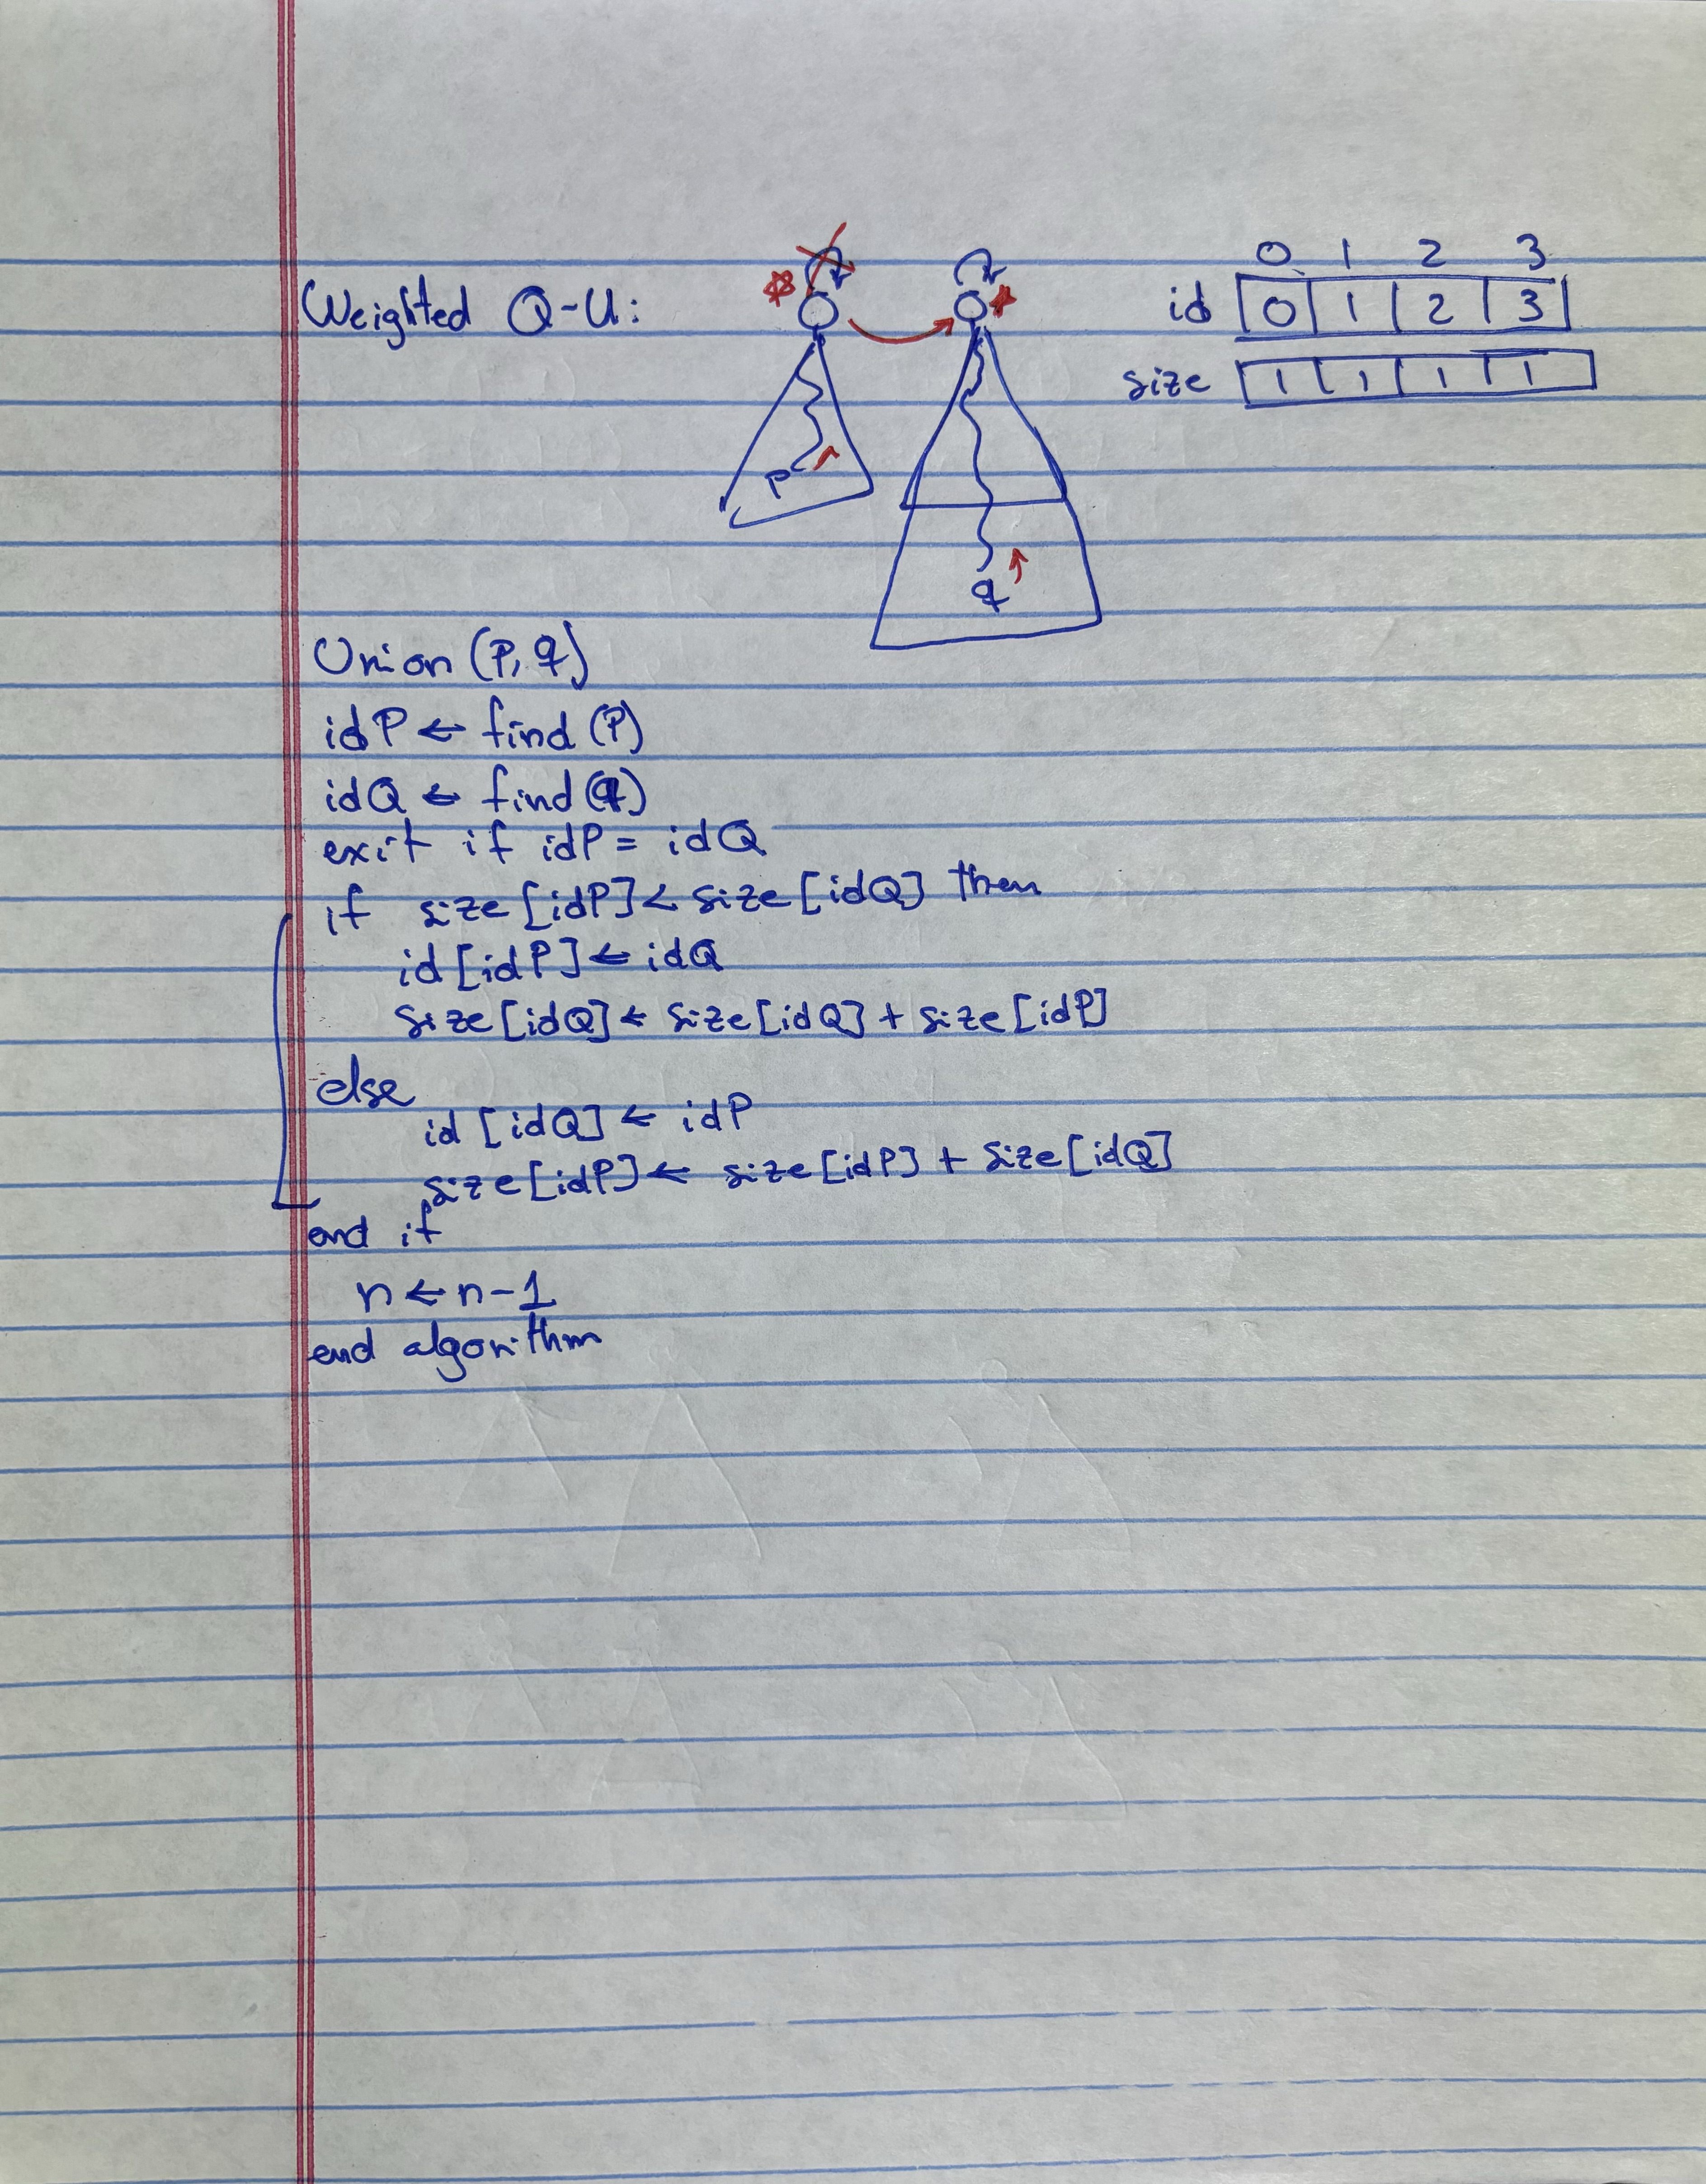 Weighted Q-U:
0 1 2 3
id 0 1 2 3
size 1 1 1 1
P
q
Union (P, q)
idP ← find (P)
idQ ← find (q)
exit if idP = idQ
if size [idP] < size [idQ] then
id [idP] ← idQ
size [idQ] ← size [idQ] + size [idP]
else
id [idQ] ← idP
size [idP] ← size [idP] + size [idQ]
end if
n ← n - 1
end algorithm